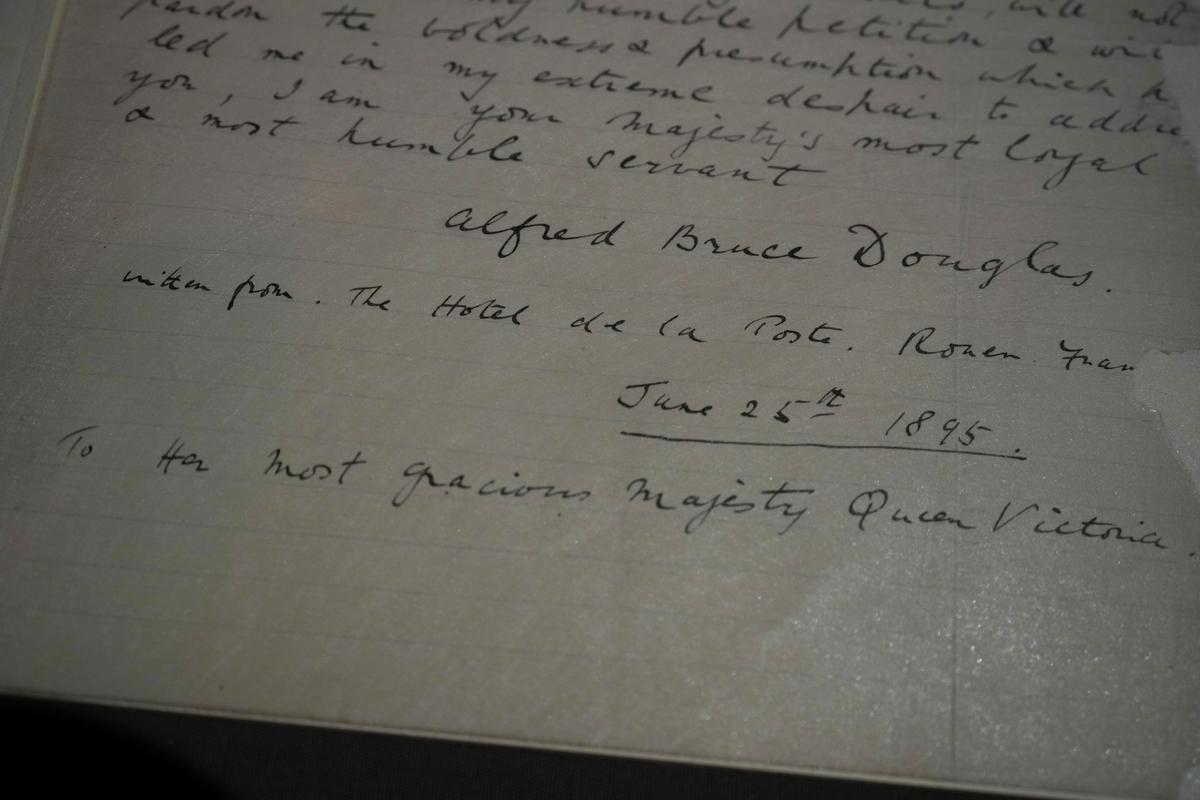 my humble petition & will not
pardon the boldness & presumption which
led me in my extreme despair to addre
you, I am your Majesty's most loyal
& most humble servant
Alfred Bruce Douglas.
written from. The Hotel de la Poste. Rouen. Fran
June 25th 1895.
To Her most gracious Majesty Queen Victoria.